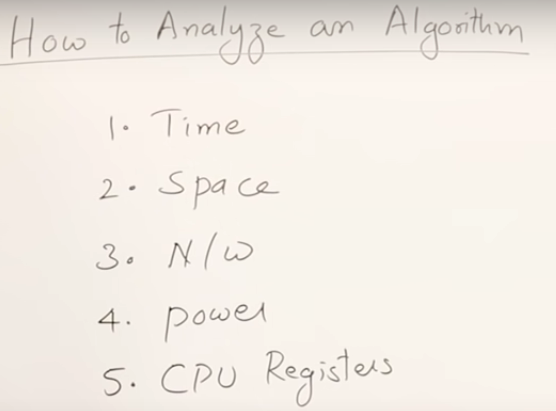 How to Analyze an Algorithm
1. Time
2. Space
3. N/W
4. power
5. CPU Registers